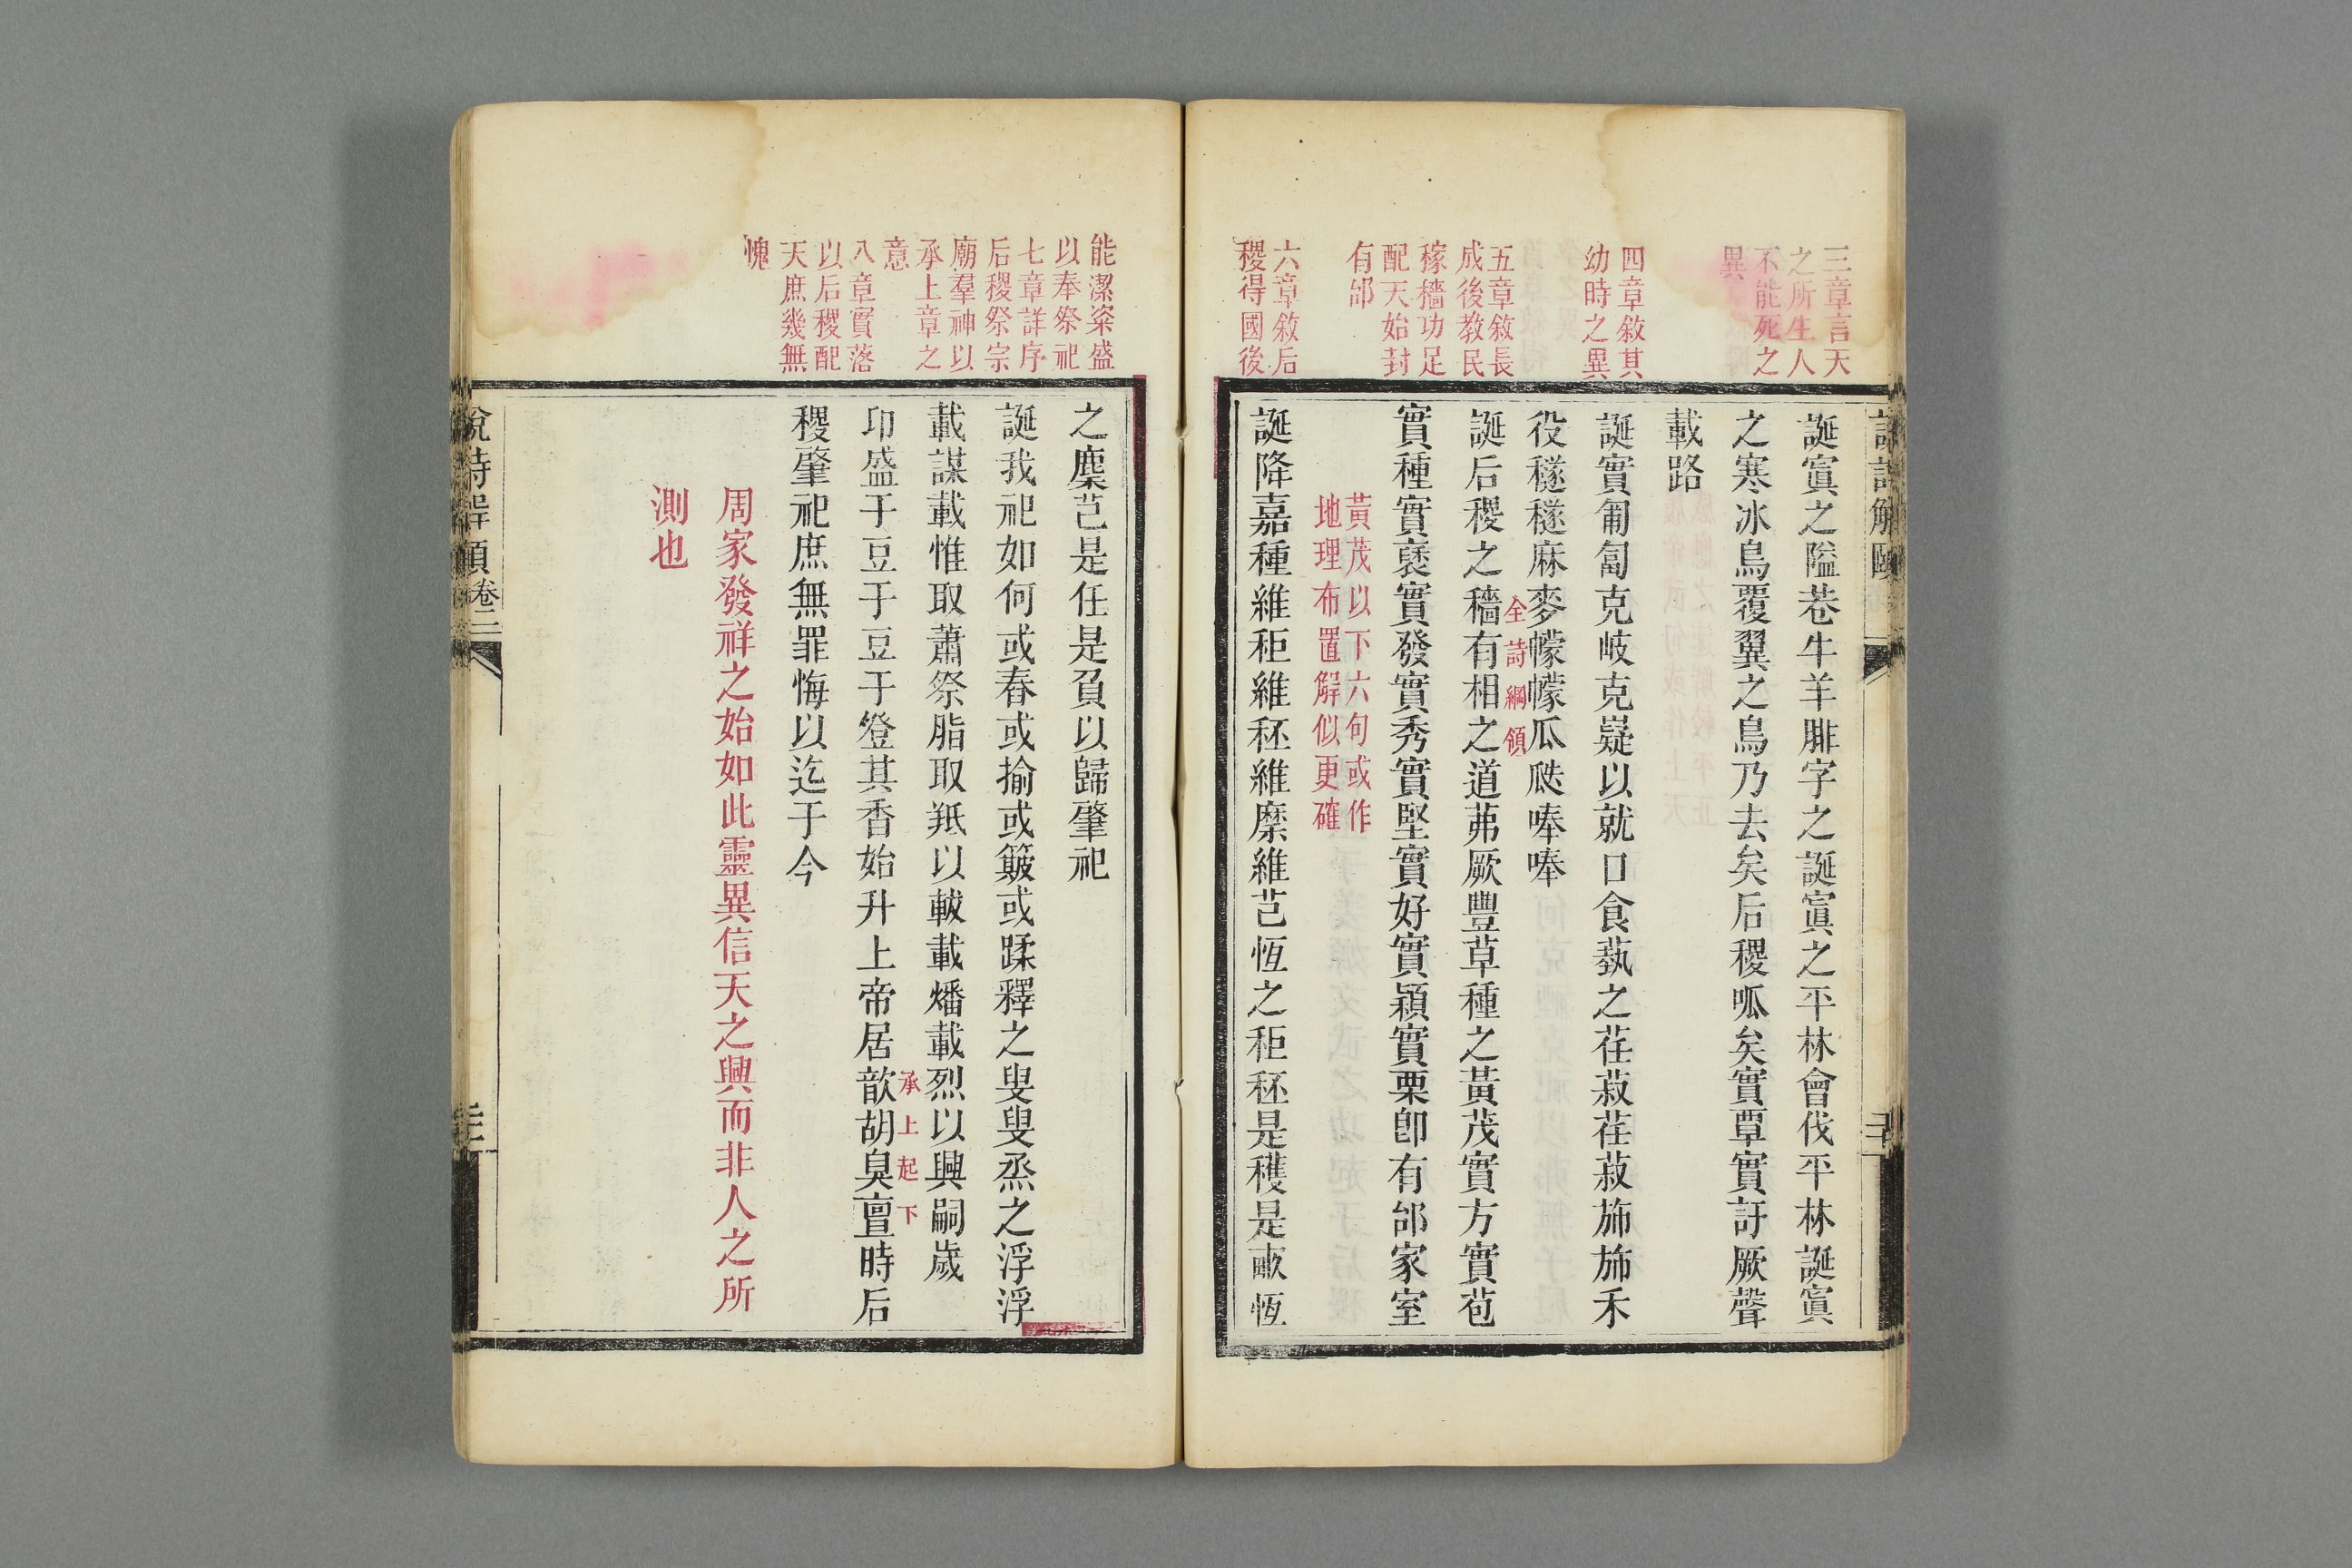 三章言天
之所生人
不能死之
異
四章敘其
幼時之異
五章敘長
成後教民
稼穡功足
配天始封
有邰
六章敘后
稷得國後
誕寘之隘巷牛羊腓字之誕寘之平林會伐平林誕寘
之寒冰鳥覆翼之鳥乃去矣后稷呱矣實覃實訏厥聲
載路
誕實匍匐克岐克嶷以就口食蓺之荏菽荏菽斾斾禾
役穟穟麻麥幪幪瓜瓞唪唪
全詩綱領
誕后稷之穡有相之道茀厥豐草種之黃茂實方實苞
實種實褎實發實秀實堅實好實穎實栗卽有邰家室
黃茂以下六句或作
地理布置解似更確
誕降嘉種維秬維秠維穈維芑恆之秬秠是穫是畝恆
能潔粢盛
以奉祭祀
七章詳序
后稷祭宗
廟羣神以
承上章之
意
八章實落
以后稷配
天庶幾無
愧
之穈芑是任是負以歸肇祀
誕我祀如何或舂或揄或簸或蹂釋之叟叟烝之浮浮
載謀載惟取蕭祭脂取羝以軷載燔載烈以興嗣歲
承上起下
卬盛于豆于豆于登其香始升上帝居歆胡臭亶時后
稷肇祀庶無罪悔以迄于今
周家發祥之始如此靈異信天之興而非人之所
測也
說詩解頤卷二